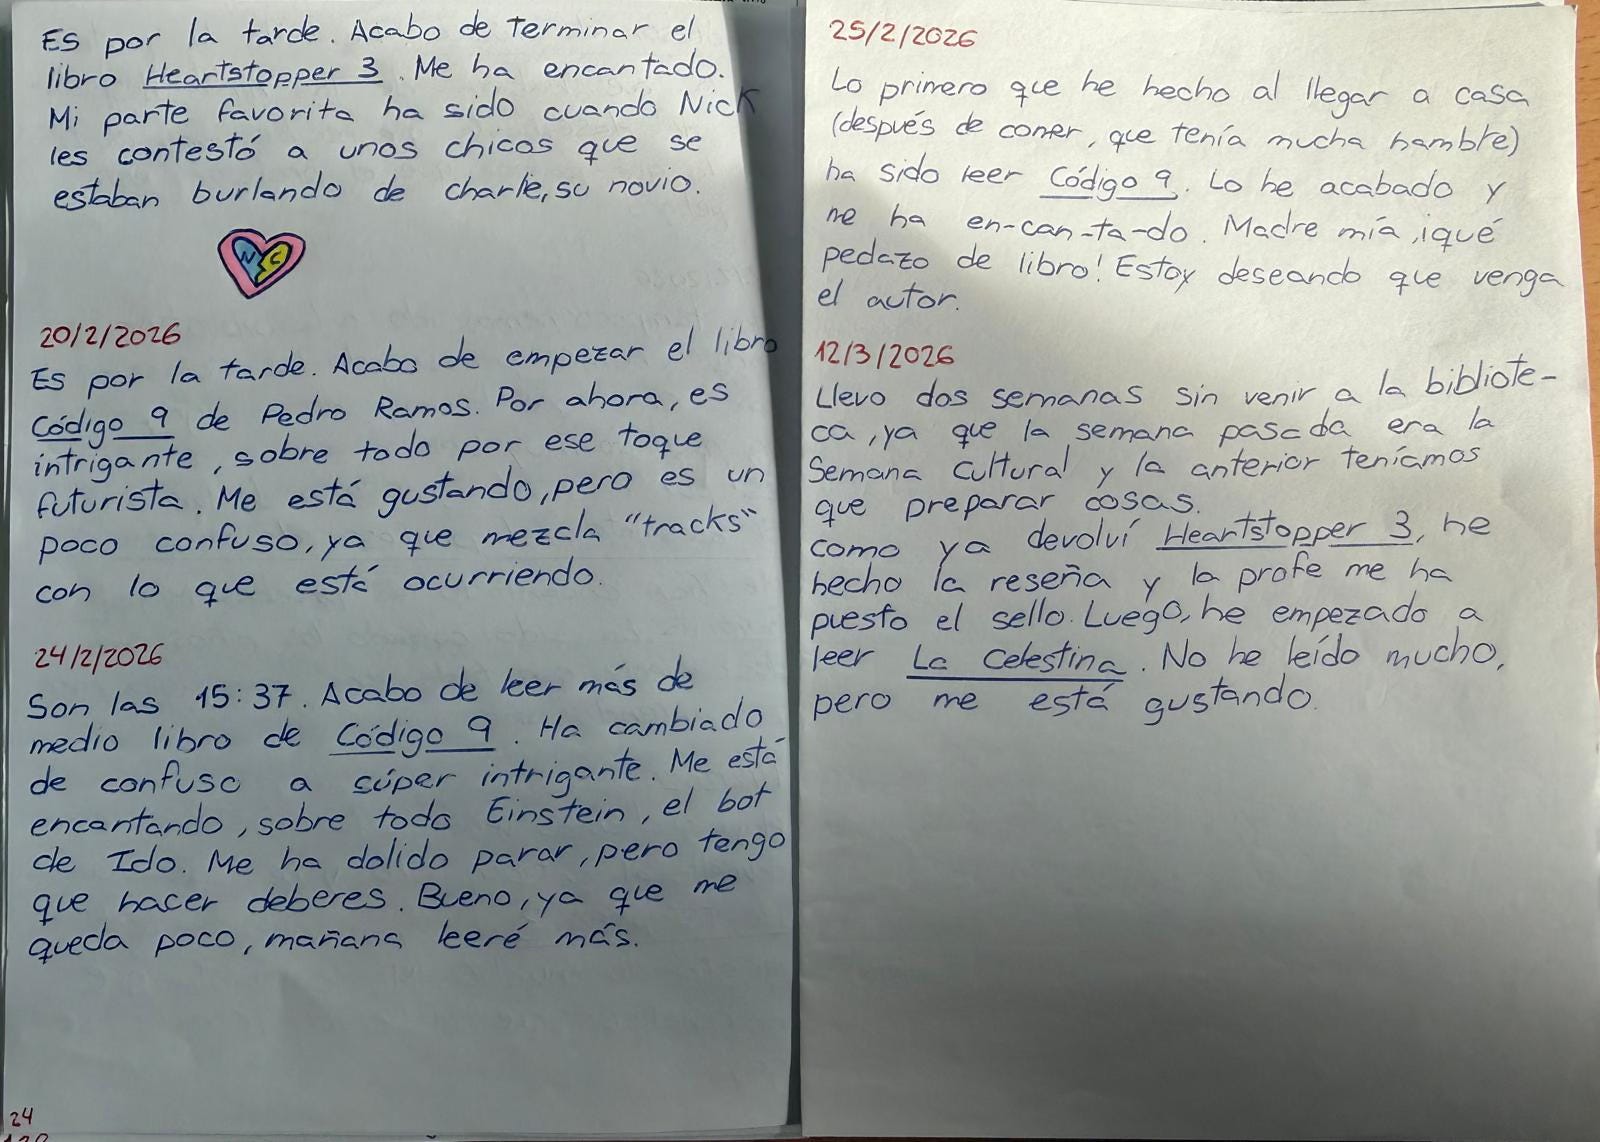 Es por la tarde. Acabo de terminar el
libro Heartstopper 3. Me ha encantado.
Mi parte favorita ha sido cuando Nick
les contestó a unos chicos que se
estaban burlando de charlie, su novio.
N C
20/2/2026
Es por la tarde. Acabo de empezar el libro
Código 9 de Pedro Ramos. Por ahora, es
intrigante, sobre todo por ese toque
futurista. Me está gustando, pero es un
poco confuso, ya que mezcla "tracks"
con lo que está ocurriendo.
24/2/2026
Son las 15:37. Acabo de leer más de
medio libro de Código 9. Ha cambiado
de confuso a súper intrigante. Me está
encantando, sobre todo Einstein, el bot
de Ido. Me ha dolido parar, pero tengo
que hacer deberes. Bueno, ya que me
queda poco, mañana leeré más.
24
25/2/2026
Lo primero que he hecho al llegar a casa
(después de comer, que tenía mucha hambre)
ha sido leer Código 9. Lo he acabado y
me ha en-can-ta-do. Madre mía, ¡qué
pedazo de libro! Estoy deseando que venga
el autor.
12/3/2026
Llevo dos semanas sin venir a la bibliote-
ca, ya que la semana pasada era la
Semana Cultural y la anterior teníamos
que preparar cosas.
Como ya devolví Heartstopper 3, he
hecho la reseña y la profe me ha
puesto el sello. Luego, he empezado a
leer La Celestina. No he leído mucho,
pero me está gustando.